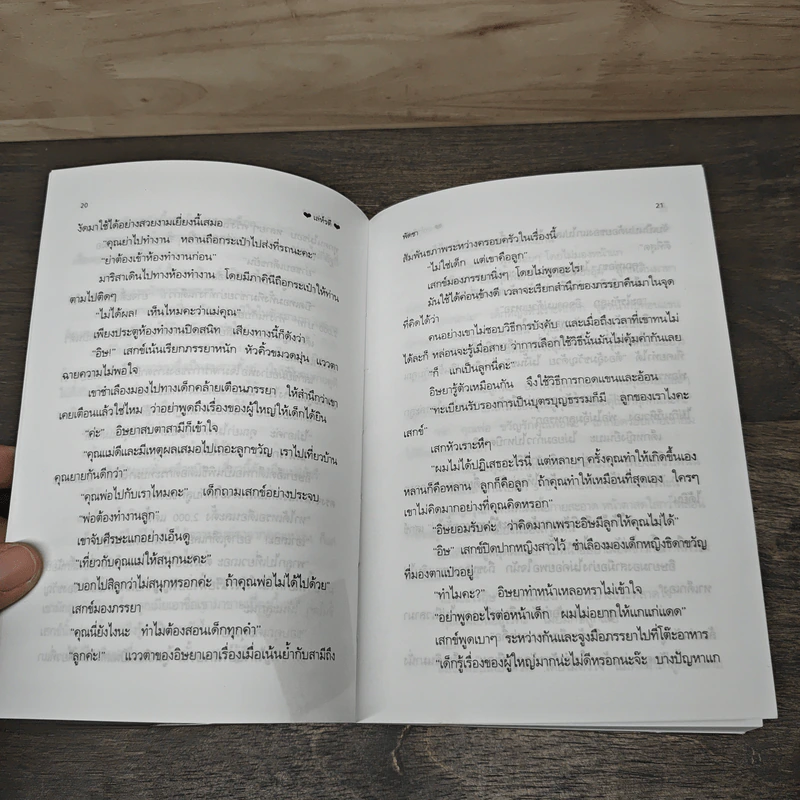 20
แค่หัวดี
งัดมาใช้ได้อย่างสวยงามเยี่ยงนี้เสมอ
"คุณย่าไปทำงาน หลานถือกระเป๋าไปส่งที่รถนะคะ"
"ย่าต้องเข้าห้องทำงานก่อน"
มาริสาเดินไปทางห้องทำงาน โดยมีภาคินีถือกระเป๋าให้ท่าน
ตามไปติดๆ
"ไม่ได้ผล! เห็นไหมคะว่าแม่คุณ"
เพียงประตูห้องทำงานปิดสนิท เสียงทางนี้ก็ดังว่า
"อิษ!" เสกข์เน้นเรียกภรรยาหนัก หัวคิ้วขมวดมุ่น แววตา
ฉายความไม่พอใจ
เขาชำเลืองมองไปทางเด็กคล้ายเตือนภรรยา ให้สำนึกว่าเขา
เคยเตือนแล้วใช่ไหม ว่าอย่าพูดถึงเรื่องของผู้ใหญ่ให้เด็กได้ยิน
"ค่ะ" อิษยาสบตาสามีก็เข้าใจ
"คุณแม่ดีและมีเหตุผลเสมอไปเถอะลูกขวัญ เราไปเที่ยวบ้าน
คุณยายกันดีกว่า"
"คุณพ่อไปกับเราไหมคะ" เด็กถามเสกข์อย่างประจบ
"พ่อต้องทำงานลูก"
เขาจับศีรษะแกอย่างเอ็นดู
"เที่ยวกับคุณแม่ให้สนุกนะคะ"
"บอกไปสิลูกว่าไม่สนุกหรอกค่ะ ถ้าคุณพ่อไม่ได้ไปด้วย"
เสกข์มองภรรยา
"คุณนี่ยังไงนะ ทำไมต้องสอนเด็กทุกคำ"
"ลูกค่ะ!" แววตาของอิษยาเอาเรื่องเมื่อเน้นย้ำกับสามีถึง
พัดชา
21
สัมพันธภาพระหว่างครอบครัวในเรื่องนี้
"ไม่ใช่เด็ก แต่เขาคือลูก"
เสกข์มองภรรยานิ่งๆ โดยไม่พูดอะไร!
มันใช้ได้ค่อนข้างดี เวลาจะเรียกสำนึกของภรรยาคืนมาในจุด
ที่คิดได้ว่า
คนอย่างเขาไม่ชอบวิธีการบังคับ และเมื่อถึงเวลาที่เขาทนไม่
ได้ละก็ หล่อนจะรู้เมื่อสาย ว่าการเลือกใช้วิธีนั้นมันไม่คุ้มค่ากันเลย
"ก็ แกเป็นลูกนี่คะ"
อิษยารู้ตัวเหมือนกัน จึงใช้วิธีการกอดแขนและอ้อน
"ทะเบียนรับรองการเป็นบุตรบุญธรรมก็มี ลูกของเราไงคะ
เสกข์"
เสกหัวเราะหึๆ
"ผมไม่ได้ปฏิเสธอะไรนี่ แต่หลายๆ ครั้งคุณทำให้เกิดขึ้นเอง
หลานก็คือหลาน ลูกก็คือลูก ถ้าคุณทำให้เหมือนที่สุดเอง ใครๆ
เขาไม่คิดมากอย่างที่คุณคิดหรอก"
"อิษยอมรับค่ะ ว่าคิดมากเพราะอิษมีลูกให้คุณไม่ได้"
"อิษ" เสกข์ปิดปากหญิงสาวไว้ ชำเลืองมองเด็กหญิงธิดาขวัญ
ที่มองตาแป๋วอยู่
"ทำไมคะ?" อิษยาทำหน้าเหลอหราไม่เข้าใจ
"อย่าพูดอะไรต่อหน้าเด็ก ผมไม่อยากให้แกแก่แดด"
เสกข์พูดเบาๆ ระหว่างกันและจูงมือภรรยาไปที่โต๊ะอาหาร
"เด็กรู้เรื่องของผู้ใหญ่มากน่ะไม่ดีหรอกนะจ๊ะ บางปัญหาแก